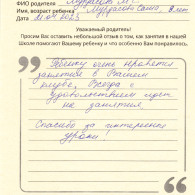 ФИО родителя
Имя, возраст ребенка Муврасова Саша, 8 лет
Дата
Уважаемый родитель!
Просим Вас оставить небольшой отзыв о том, как занятия в нашей
Школе помогают Вашему ребенку и что особенно Вам понравилось.
Ребёнку очень нравятся
занятия в Вашем
клубе. Всегда с
удовольствием идёт
на занятия.
Спасибо за интересные
уроки!